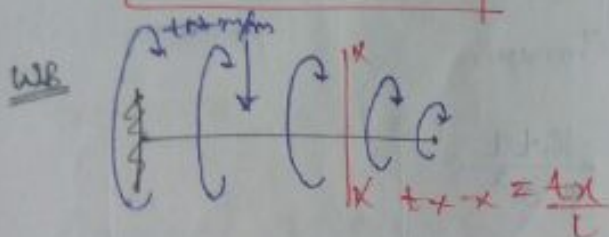 t N-m/m
WB
x
x t x-x = tx/L